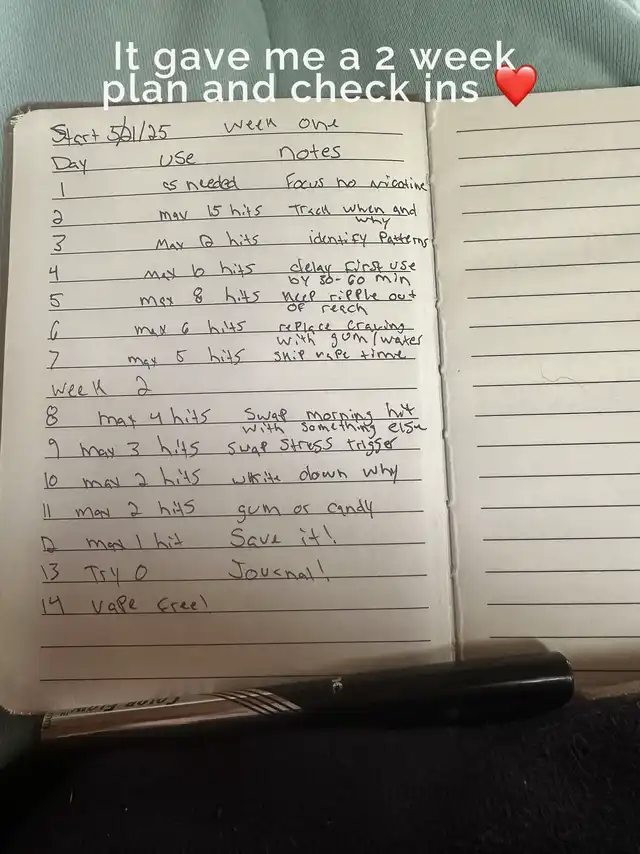 It gave me a 2 week
plan and check ins ❤️
Start 5/21/25 week one
Day use notes
1 as needed Focus no nicotine
2 max 15 hits Track when and
why
3 Max 12 hits identify Patterns
4 max 10 hits delay First use
by 30-60 min
5 max 8 hits keep ripple out
of reach
6 max 6 hits replace craving
with gum/water
7 max 5 hits skip vape time
week 2
8 max 4 hits Swap morning hit
with something else
9 max 3 hits swap stress trigger
10 max 2 hits write down why
11 max 2 hits gum or candy
12 max 1 hit Save it!
13 Try 0 Journal!
14 vape free!